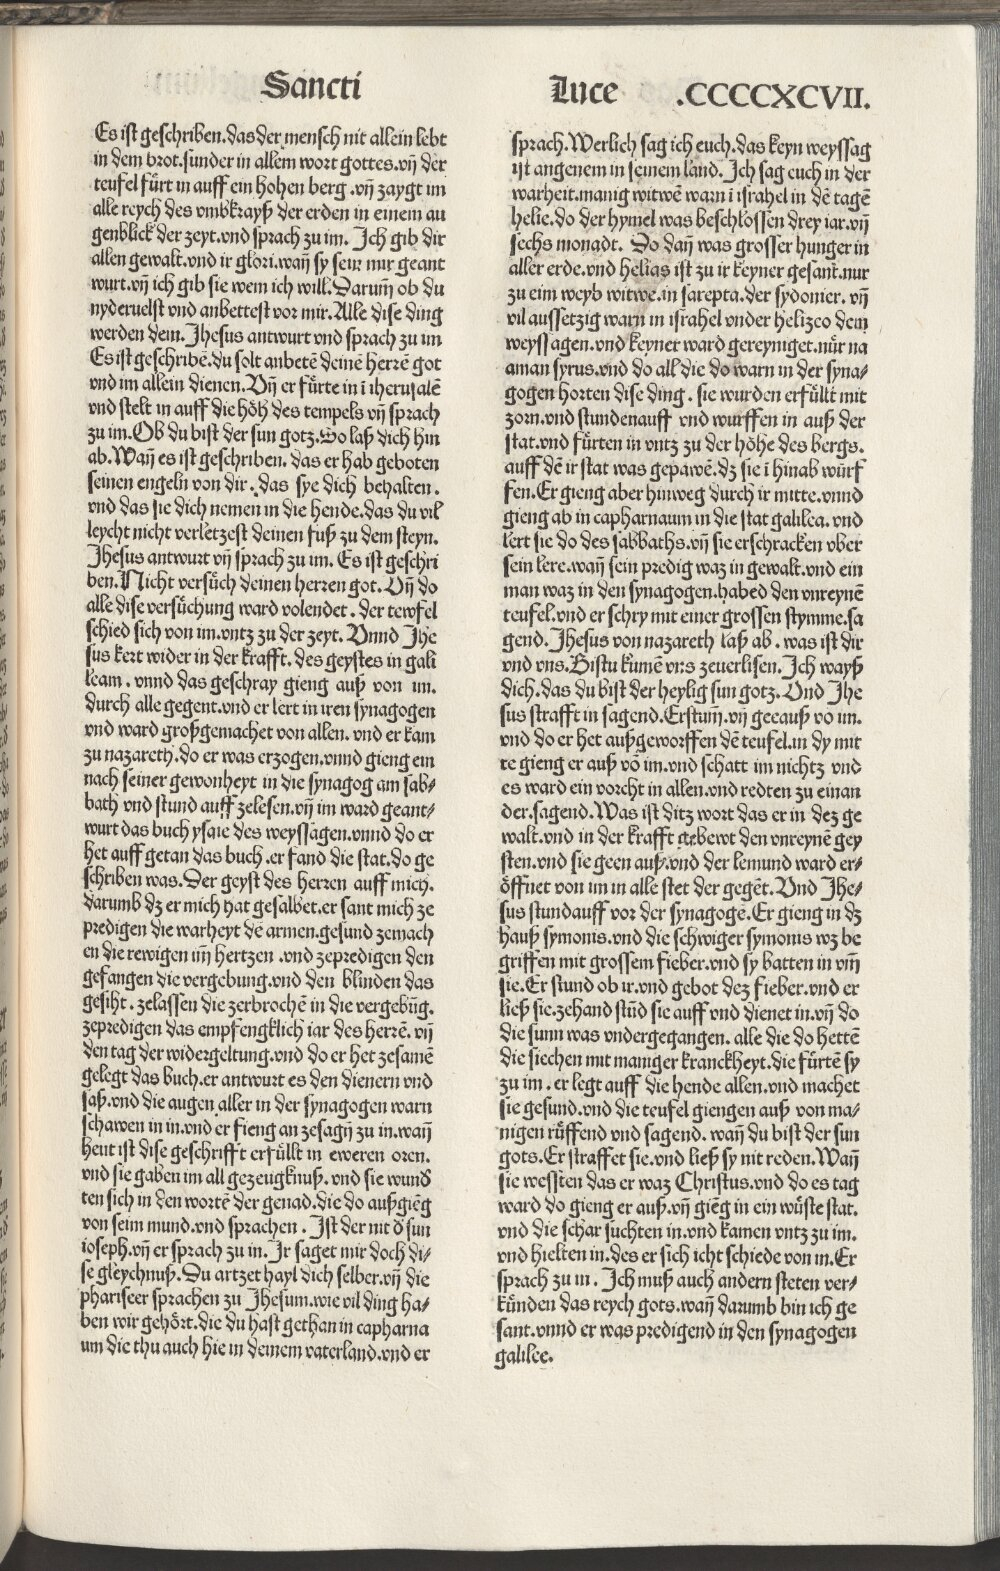 Sancti
Luce .CCCCXCVII.
Es ist geschriben.das der mensch nit allein lebt
in dem brot.sunder in allem wort gottes.vn̄ der
teufel fürt in auff ein hohen berg.vn̄ zaygt im
alle reych des vmbkrayß der erden in einem au
genblick der zeyt.vnd sprach zu im. Ich gib dir
allen gewalt.vnd ir glori.wan̄ sy sein mir geant
wurt.vn̄ ich gib sie wem ich will.Darum̄ ob du
nyderuelst vnd anbettest vor mir.Alle dise ding
werden dein. Jhesus antwurt vnd sprach zu im
Es ist geschribē.du solt anbetē deinē herrē got
vnd im allein dienen.Vn̄ er fürte in ī iherusalē
vnd stelt in auff die höh des tempels vn̄ sprach
zu im.Ob du bist der sun gotz.So laß dich hin
ab.Wan̄ es ist geschriben. das er hab geboten
seinen engeln von dir. das sye dich behalten.
vnd das sie dich nemen in die hende.das du vil
leycht nicht verletzest deinen fuß zu dem steyn.
Jhesus antwurt vn̄ sprach zu im. Es ist geschri
ben.Nicht versůch deinen herren got. Vn̄ do
alle dise versůchung ward volendet. der tewfel
schied sich von im.vntz zu der zeyt. Vnnd Jhe
sus kert wider in der krafft. des geystes in gali
leam. vnnd das geschray gieng auß von im.
durch alle gegent.vnd er lert in iren synagogen
vnd ward großgemachet von allen. vnd er kam
zu nazareth.do er was erzogen.vnnd gieng ein
nach seiner gewonheyt in die synagog am sab⸗
bath vnd stund auff zelesen.vn̄ im ward geant⸗
wurt das buch ysaie des weyssagen.vnnd do er
het auff getan das buch.er fand die stat.do ge
schriben was.Der geyst des herren auff mich.
darumb dz er mich hat gesalbet.er sant mich ze
predigen die warheyt dē armen.gesund zemach
en die rewigen im̄ hertzen.vnd zepredigen den
gefangen die vergebung.vnd den blinden das
gesiht. zelassen die zerbrochē in die vergebūg.
zepredigen das empfengklich iar des herrē. vn̄
den tag der widergeltung.vnd do er het zesamē
gelegt das buch.er antwurt es den dienern vnd
saß.vnd die augen aller in der synagogen warn
schawen in in.vnd er fieng an zesagn̄ zu in.wan̄
heut ist dise geschrifft erfüllt in eweren oren.
vnd sie gaben im all gezeugknuß. vnd sie wund
ten sich in den wortē der genad.die do außgiēg
von seim mund.vnd sprachen. Ist der nit d̓ sun
ioseph.vn̄ er sprach zu in. Ir saget mir doch di⸗
se gleychnuß.Du artzet hayl dich selber.vn̄ die
phariseer sprachen zu Jhesum.wie vil ding ha⸗
ben wir gehört.die du hast gethan in capharna
um die thu auch hie in deinem vaterland.vnd er
sprach.Werlich sag ich euch.das keyn weyssag
ist angenem in seinem land. Ich sag euch in der
warheit.manig witwē warn ī israhel in dē tagē
helie.do der hymel was beschlossen drey iar.vn̄
sechs monadt. Do dan̄ was grosser hunger in
aller erde.vnd helias ist zu ir keyner gesant.nur
zu eim weyb witwe.in sarepta.der sydonier. vn̄
vil aussetzig warn in israhel vnder helizeo dem
weyssagen.vnd keyner ward gereyniget.nür na
aman syrus.vnd do all die do warn in der syna⸗
gogen horten dise ding. sie wurden erfüllt mit
zorn.vnd stundenauff vnd wurffen in auß der
stat.vnd fürten in vntz zu der höhe des bergs.
auff dē ir stat was gepawē.dz sie ī hinab würf
fen.Er gieng aber hinweg durch ir mitte.vnnd
gieng ab in capharnaum in die stat galilea. vnd
lert sie do des sabbaths.vn̄ sie erschracken vber
sein lere.wan̄ sein predig waz in gewalt.vnd ein
man waz in den synagogen.habed den vnreynē
teufel.vnd er schry mit einer grossen stymme.sa
gend. Jhesus von nazareth laß ab. was ist dir
vnd vns.Bistu kumē vns zeuerlisen.Ich wayß
dich.das du bist der heylig sun gotz. Vnd Jhe
sus strafft in sagend.Erstum̄.vn̄ geeauß vō im.
vnd do er het außgeworffen dē teufel.in dy mit
te gieng er auß vō im.vnd schatt im nichtz vnd
es ward ein vorcht in allen.vnd redten zu einan
der.sagend.Was ist ditz wort das er in dez ge
walt.vnd in der krafft gebewt den vnreynē gey
sten.vnd sie geen auß.vnd der lemund ward er⸗
öffnet von im in alle stet der gegēt. Vnd Jhe⸗
sus stundauff vor der synagogē.Er gieng in dz
hauß symonis.vnd die schwiger symonis wz be
griffen mit grossem fieber.vnd sy batten in vm̄
sie.Er stund ob ir.vnd gebot dez fieber.vnd er
ließ sie.zehand stūd sie auff vnd dienet in.vn̄ do
die sunn was vndergegangen. alle die do hettē
die siechen mit maniger kranckheyt.die fürtē sy
zu im. er legt auff die hende allen.vnd machet
sie gesund.vnd die teufel giengen auß von ma⸗
nigen rüffend vnd sagend. wan̄ du bist der sun
gots.Er straffet sie.vnd ließ sy nit reden.Wan̄
sie wessten das er waz Christus.vnd do es tag
ward do gieng er auß.vn̄ giēg in ein wüste stat.
vnd die schar suchten in.vnd kamen vntz zu im.
vnd hielten in.des er sich icht schiede von in.Er
sprach zu in. Ich muß auch andern steten ver⸗
künden das reych gots.wan̄ darumb bin ich ge
sant.vnnd er was predigend in den synagogen
galilee.